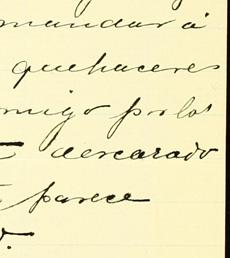 mandar á
quehaceres
migo por la
descarado
parece